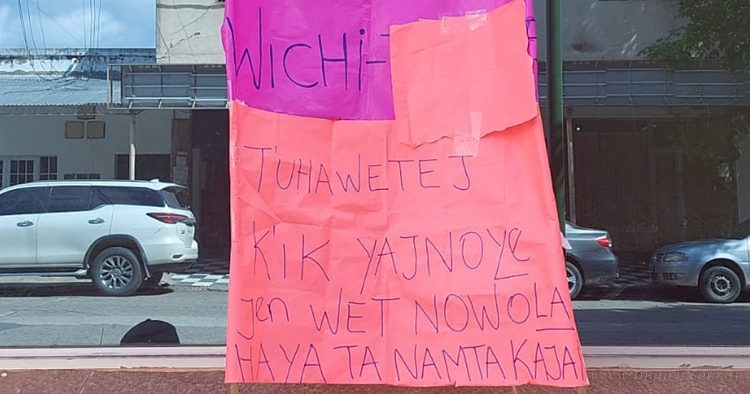 WICHI-
TUHAWETEJ
K'IK YAJNOYE
Jen WET NOWOLA
HAYA TA NAMTAKAJA